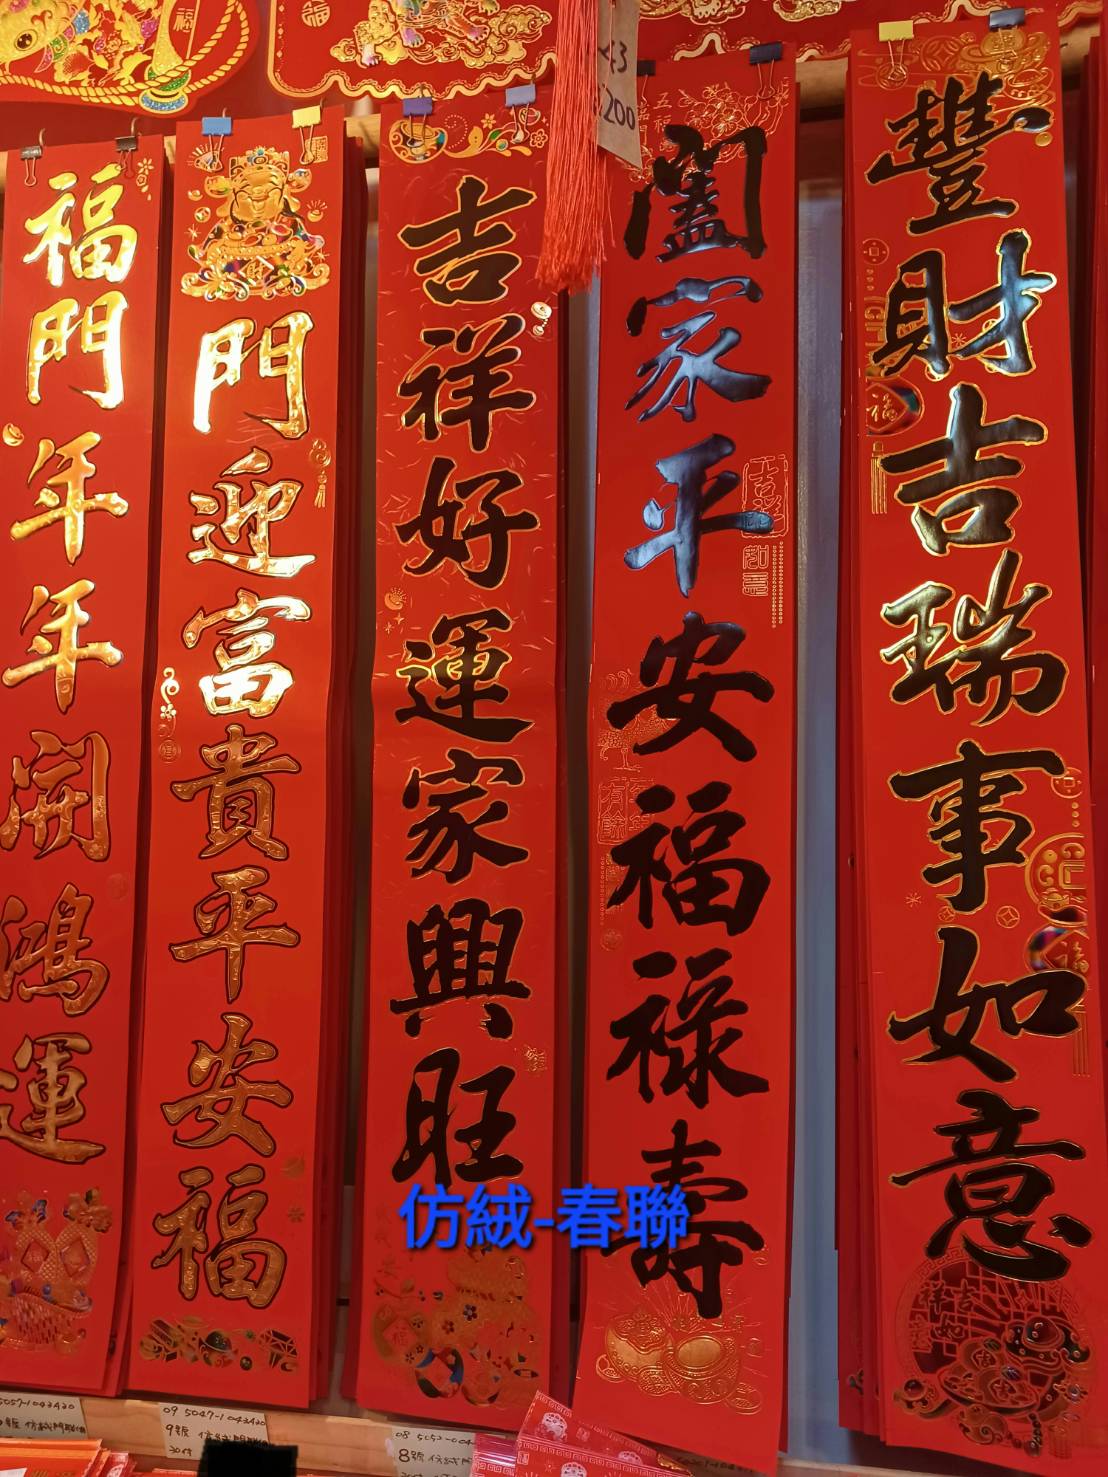 福門年年開鴻運
門迎富貴平安福
吉祥好運家興旺
闔家平安福祿壽
豐財吉瑞事如意
仿絨-春聯
200
09 5047-1043A20
9號
8號